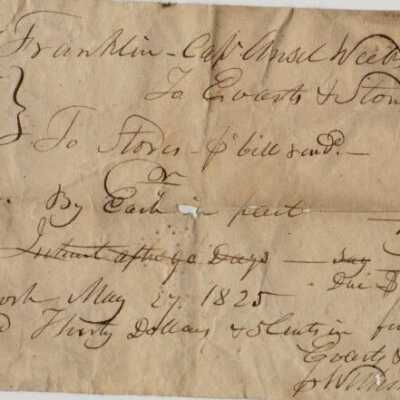 Franklin - Capt Ansel Weeks
To Evarts & Ston
To Stores - pr bill rendd. -
Cr
By Cash in part
Interest after 90 Days -
Due $
York May 27. 1825
Thirty Dollars & 5 Cents in fu
Evarts &
pr